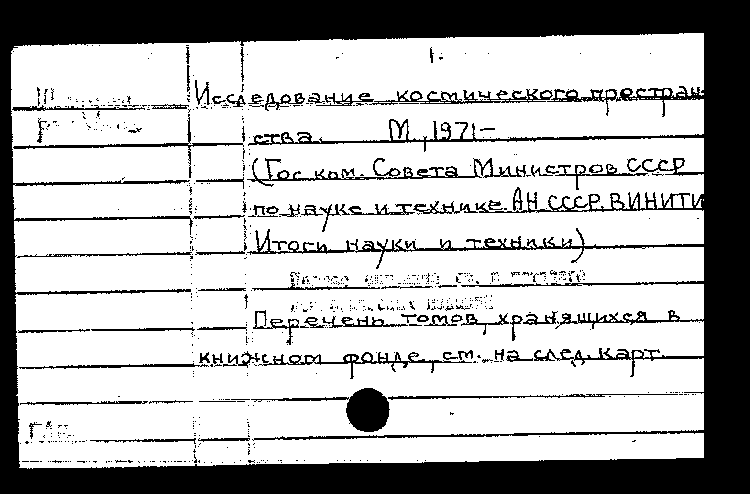 1.
Исследование космического простран-
ства. М., 1971-
(Гос. ком. Совета Министров СССР
по науке и технике. АН СССР. ВИНИТИ
Итоги науки и техники).
Перечень томов, хранящихся в
книжном фонде, см. на след. карт.